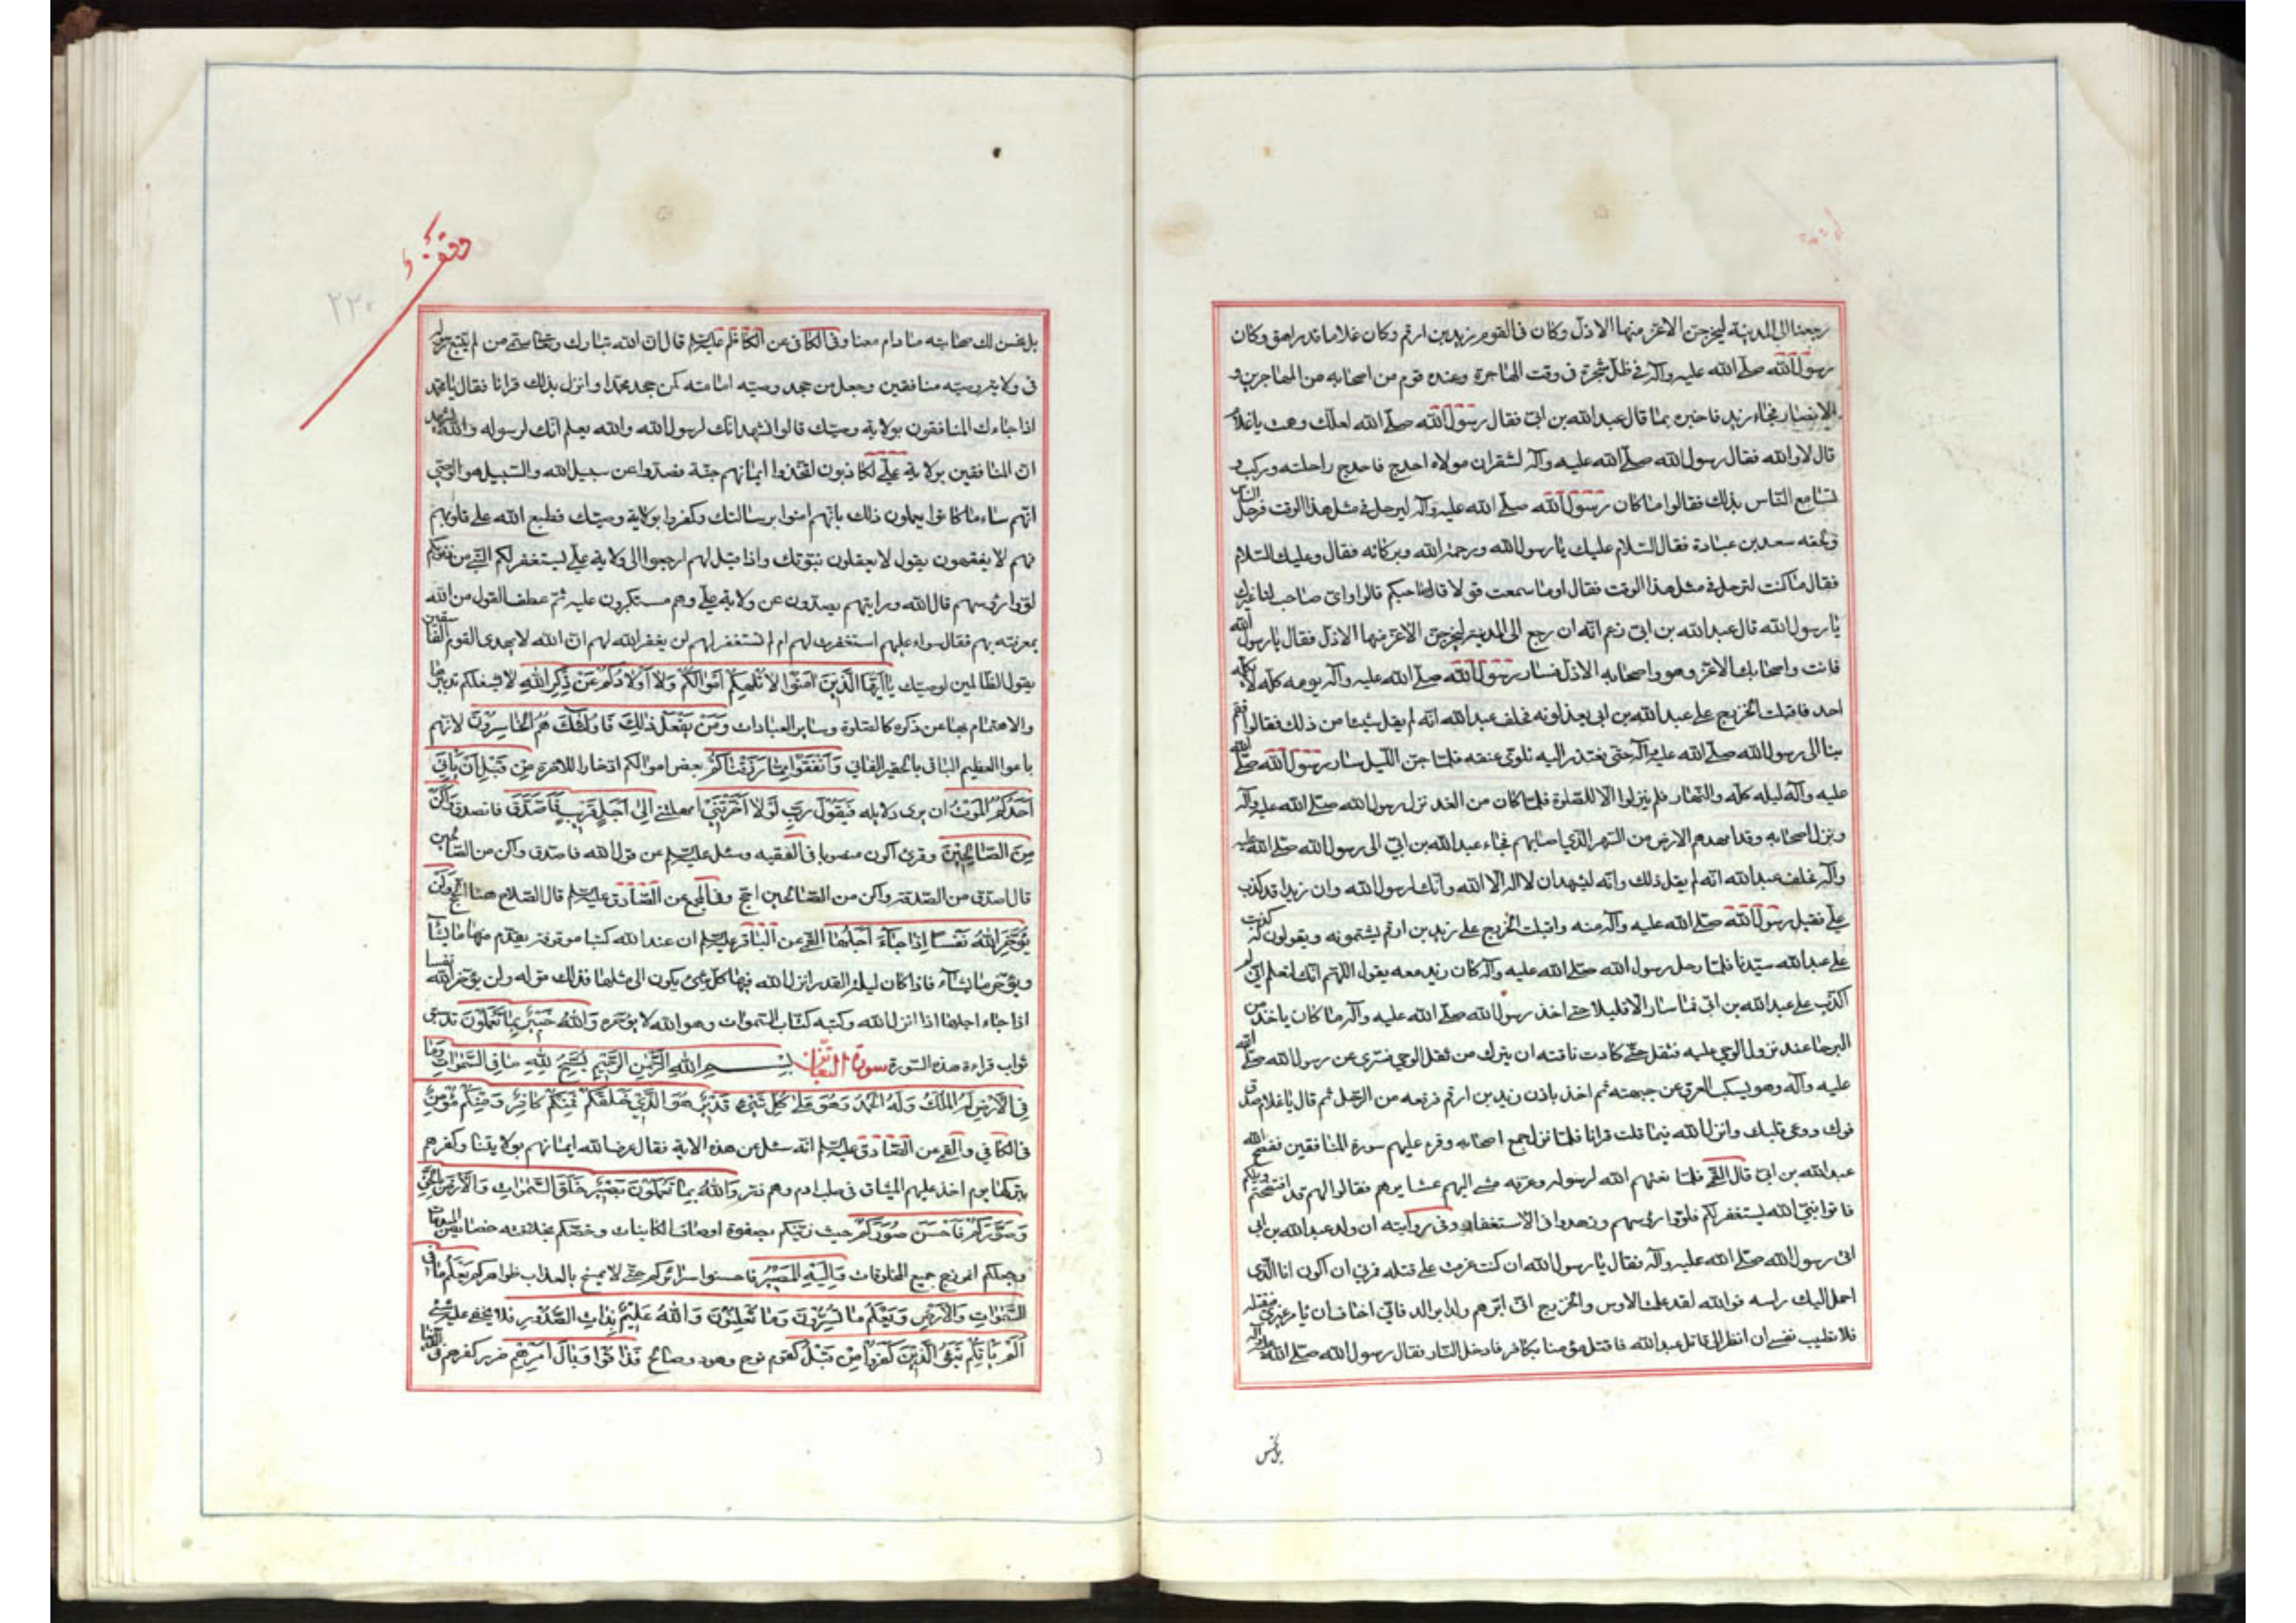 رجعنا الی المدینه لیخرجن الاعز منها الاذل وکان فی القوم زید بن ارقم وکان غلاما قد راهق وکان
رسول الله صلی الله علیه وآله فی ظل شجرة فی وقت الهاجرة وعنده قوم من اصحابه من المهاجرین و
الانصار فجاء زید فاخبره بما قال عبد الله بن ابی فقال رسول الله صلی الله لعلک وهمت یا غلام
قال لا والله فقال رسول الله صلی الله علیه وآله لشقران مولاه احدج فاحدج راحلته ورکب و
تسامع الناس بذلک فقالوا ما کان رسول الله صلی الله علیه وآله لیرحل فی مثل هذا الوقت فرحل الناس
ولحقه سعد بن عبادة فقال السلام علیک یا رسول الله ورحمة الله وبرکاته فقال وعلیک السلام
فقال ما کنت لترحل فی مثل هذا الوقت فقال اوما سمعت قولا قال صاحبکم قالوا وای صاحب لنا غیرک
یا رسول الله قال عبد الله بن ابی زعم انه ان رجع الی المدینة لیخرجن الاعز منها الاذل فقال یا رسول الله
فانت واصحابک الاعز وهو واصحابه الاذل فسار رسول الله صلی الله علیه وآله یومه کله لا یکلمه
احد فاقبلت الخزرج علی عبد الله بن ابی یعذلونه فحلف عبد الله انه لم یقل شیئا من ذلک فقالوا فقم
بنا الی رسول الله صلی الله علیه وآله حتی نعتذر الیه فلوی عنقه فلما جن اللیل سار رسول الله صلی الله
علیه وآله لیله کله والنهار فلم ینزلوا الا للصلوة فلما کان من الغد نزل رسول الله صلی الله علیه وآله
ونزل اصحابه وقد امهدهم الارض من السهر الذی اصابهم فجاء عبد الله بن ابی الی رسول الله صلی الله علیه
وآله فحلف عبد الله انه لم یقل ذلک وانه لیشهد ان لا اله الا الله وانک لرسول الله وان زیدا قد کذب
علی فقبل رسول الله صلی الله علیه وآله منه واقبلت الخزرج علی زید بن ارقم یشتمونه ویقولون له کذبت
علی عبد الله سیدنا فلما رحل رسول الله صلی الله علیه وآله کان زید معه یقول اللهم انک لتعلم انی لم
اکذب علی عبد الله بن ابی فما سار الا قلیلا حتی اخذ رسول الله صلی الله علیه وآله ما کان یاخذه من
البرحاء عند نزول الوحی علیه فثقل حتی کادت ناقته ان تبرک من ثقل الوحی فسری عن رسول الله صلی الله
علیه وآله وهو یسکب العرق عن جبهته ثم اخذ باذن زید بن ارقم فرفعه من الرحل ثم قال یا غلام صدق
فوک ووعی قلبک وانزل الله فیما قلت قرانا فلما نزل جمع اصحابه وقرء علیهم سورة المنافقین ففضح الله
عبد الله بن ابی قال القمی فلما نعتهم الله لرسوله وعرفه مشی الیهم عشایرهم فقالوا لهم قد افتضحتم ویلکم
فاتوا نبی الله یستغفر لکم فلووا رؤسهم وزهدوا فی الاستغفار وفی روایته ان ولد عبد الله بن ابی
اتی رسول الله صلی الله علیه وآله فقال یا رسول الله ان کنت عزمت علی قتله فمرنی ان اکون انا الذی
احمل الیک راسه فوالله لقد علمت الاوس والخزرج انی ابرهم ولدا بوالد فانی اخاف ان یامر غیری فیقتله
فلا تطیب نفسی ان انظر الی قاتل عبد الله فاقتل مؤمنا بکافر فادخل النار فقال رسول الله صلی الله علیه وآله
بل نحسن
وقف
۲۳۰
بل نحسن لک صحابته مادام معنا وفی الکافی عن الکاظم علیه السلم قال ان الله تبارک وتعالی سمی من لم یتبع رسوله
فی ولایة وصیه منافقین وجعل من جحد وصیه امامته کمن جحد محمدا وانزل بذلک قرانا فقال یا محمد
اذا جاءک المنافقون بولایة وصیک قالوا نشهد انک لرسول الله والله یعلم انک لرسوله والله یشهد
ان المنافقین بولایة علی لکاذبون اتخذوا ایمانهم جنة فصدوا عن سبیل الله والسبیل هو الوصی
انهم ساء ما کانوا یعملون ذلک بانهم امنوا برسالتک وکفروا بولایة وصیک فطبع الله علی قلوبهم
فهم لا یفقهون یقول لا یعقلون نبوتک واذا قیل لهم ارجعوا الی ولایة علی یستغفر لکم النبی من ذنوبکم
لووا رؤسهم قال الله ورایتهم یصدون عن ولایة علی وهم مستکبرون علیه ثم عطف القول من الله
بمعرفته بهم فقال سواء علیهم استغفرت لهم ام لم تستغفر لهم لن یغفر الله لهم ان الله لا یهدی القوم الفاسقین
یقول الظالمین لوصیک یا ایها الذین امنوا لا تلهکم اموالکم ولا اولادکم عن ذکر الله لا یشغلکم تدبیرها
والاهتمام بها عن ذکره کالصلوة وسایر العبادات ومن یفعل ذلک فاولئک هم الخاسرون لانهم
باعوا العظیم الباقی بالحقیر الفانی وانفقوا مما رزقناکم بعض اموالکم ادخارا للاخرة من قبل ان یاتی
احدکم الموت ان یری دلایله فیقول رب لولا اخرتنی امهلتنی الی اجل قریب فاصدق فاتصدق واکن
من الصالحین وقرئ اکون منصوبا فی الفقیه وسئل علیه السلم عن قول الله فاصدق واکن من الصالحین
قال اصدق من الصدقة واکن من الصالحین احج وفی المجمع عن الصادق علیه السلم قال الصلاح هنا الحج ولن
یؤخر الله نفسا اذا جاء اجلها القمی عن الباقر علیه السلم ان عند الله کتبا موقوفة یقدم منها ما یشاء
ویؤخر ما یشاء فاذا کان لیلة القدر انزل الله فیها کل شیء یکون الی مثلها فذلک قوله ولن یؤخر الله نفسا
اذا جاء اجلها اذا انزل الله وکتبه کتاب السموات وهو الذی لا یؤخره والله خبیر بما تعملون قد سبق
ثواب قراءة هذه السورة سورة التغابن بسم الله الرحمن الرحیم یسبح لله ما فی السموات وما
فی الارض له الملک وله الحمد وهو علی کل شیء قدیر هو الذی خلقکم فمنکم کافر ومنکم مؤمن
فی الکافی والقمی عن الصادق علیه السلم انه سئل عن هذه الایة فقال عرف الله ایمانهم بولایتنا وکفرهم
بترکها یوم اخذ علیهم المیثاق فی صلب ادم وهم ذر والله بما تعملون بصیر خلق السموات والارض بالحق
وصورکم فاحسن صورکم حیث زینکم بصفوة اوصاف الکاینات وخصکم بخلاصة خصایص المبدعات
وجعلکم انموذج جمیع المخلوقات والیه المصیر فاحسنوا سرائرکم حتی لا یمسخ بالعذاب ظواهرکم یعلم ما فی
السموات والارض ویعلم ما تسرون وما تعلنون والله علیم بذات الصدور فلا یخفی علیه شیء
الم یاتکم نبؤ الذین کفروا من قبل کقوم نوح وهود وصالح فذاقوا وبال امرهم ضرر کفرهم فی الدنیا